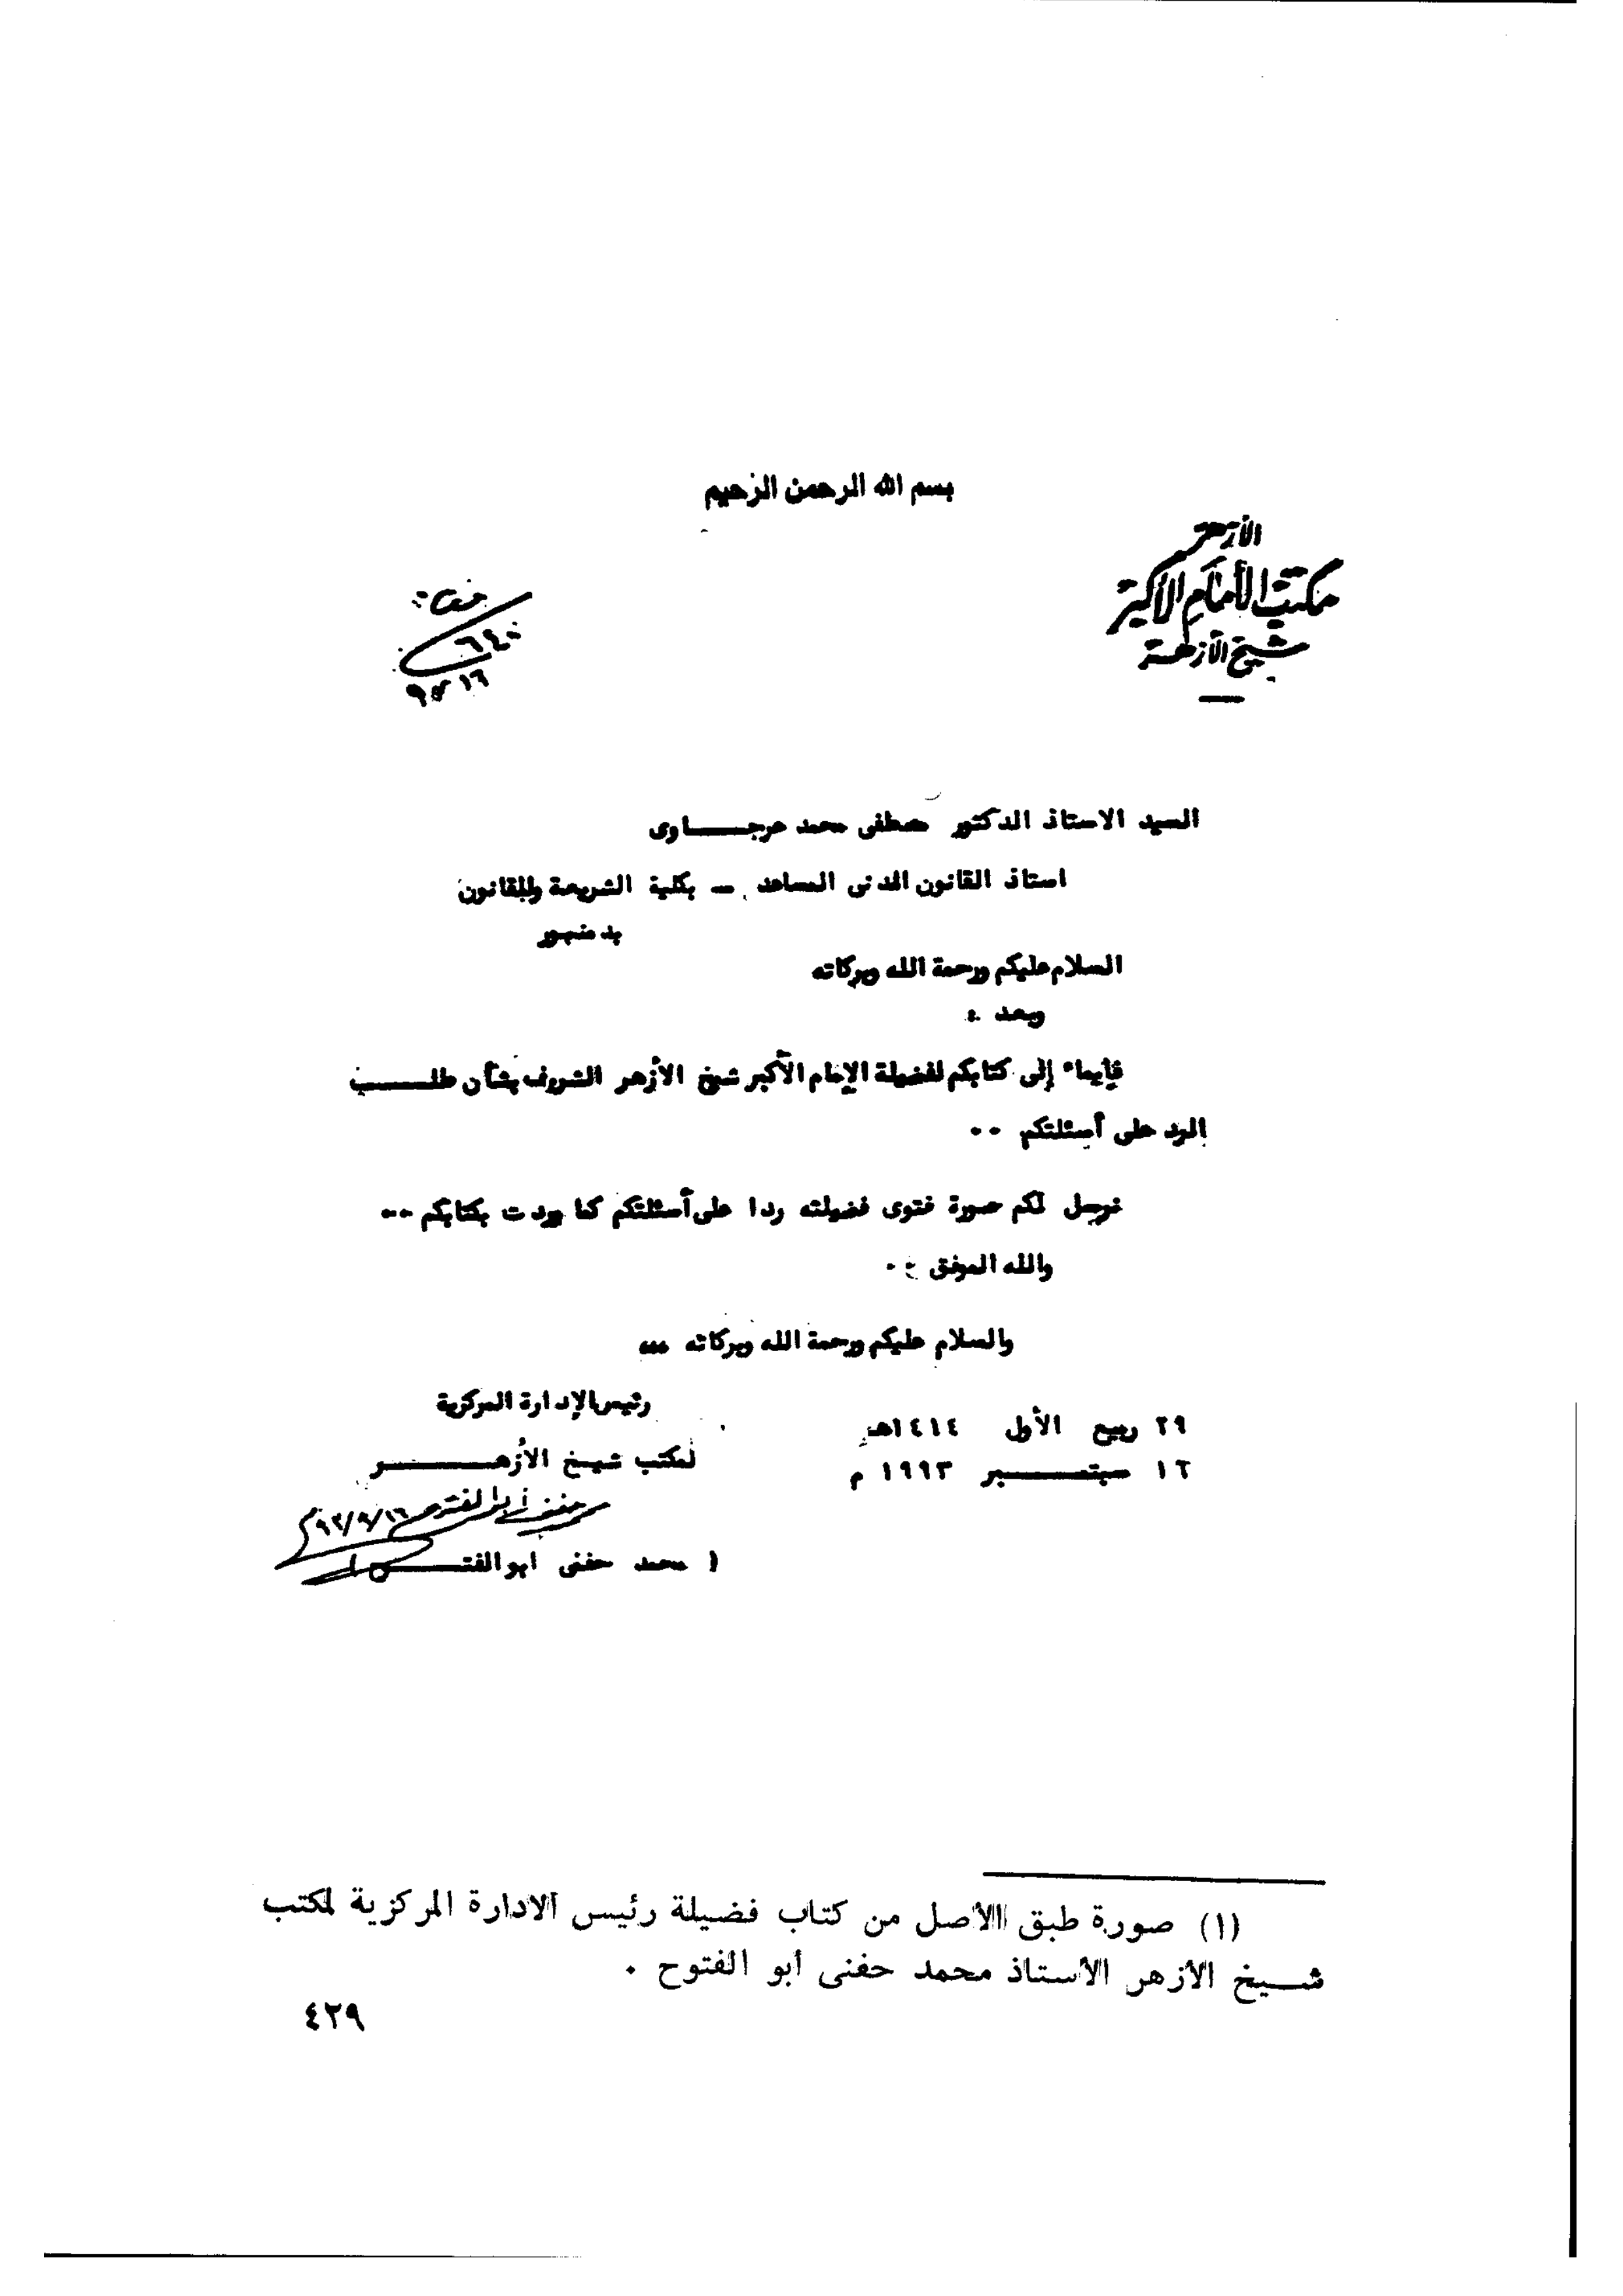 بسم الله الرحمن الرحيم
الأزهر
مكتب الأمام الأكبر
شيخ الأزهر
٦٤٠
السيد الاستاذ الدكتور مصطفى محمد عرجـــاوى
استاذ القانون المدنى المساعد - بكلية الشريعة والقانون
بدمنهور
السلام عليكم ورحمة الله وبركاته
وبعد :
فإيماء إلى كتابكم لفضيلة الإمام الأكبر شيخ الأزهر الشريف بشأن طلـــب
الرد على أسئلتكم ..
نرسل لكم صورة فتوى فضيلته ردا على أسئلتكم كما وردت بكتابكم ..
والله الموفق ..
والسلام عليكم ورحمة الله وبركاته ،،،
رئيس الإدارة المركزية
٢٩ ربيع الأول ١٤١٤هـ
لمكتب شيخ الأزهـــر
١٦ سبتمـــبر ١٩٩٣ م
حفنى أبو الفتوح ٩٣/٩/١٦
( محمد حفنى ابو الفتـــوح )
(١) صورة طبق الأصل من كتاب فضيلة رئيس الادارة المركزية لمكتب
شـيخ الأزهر الأستاذ محمد حفنى أبو الفتوح .
٤٢٩